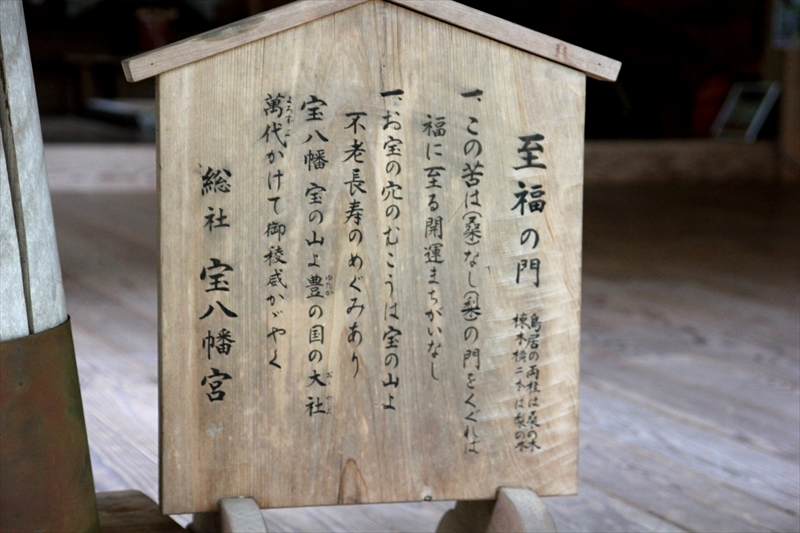 至福の門
鳥居の両柱は桑の木
棟木横二本は梨の木
一、この苦は(桑)なし(梨)の門をくぐれば
福に至る開運まちがいなし
一、お宝の穴のむこうは宝の山よ
不老長寿のめぐみあり
宝八幡 宝の山よ豊の国の大社
ゆたか
おやしろ
萬代かけて御稜威かゞやく
よろずよ
総社 宝八幡宮